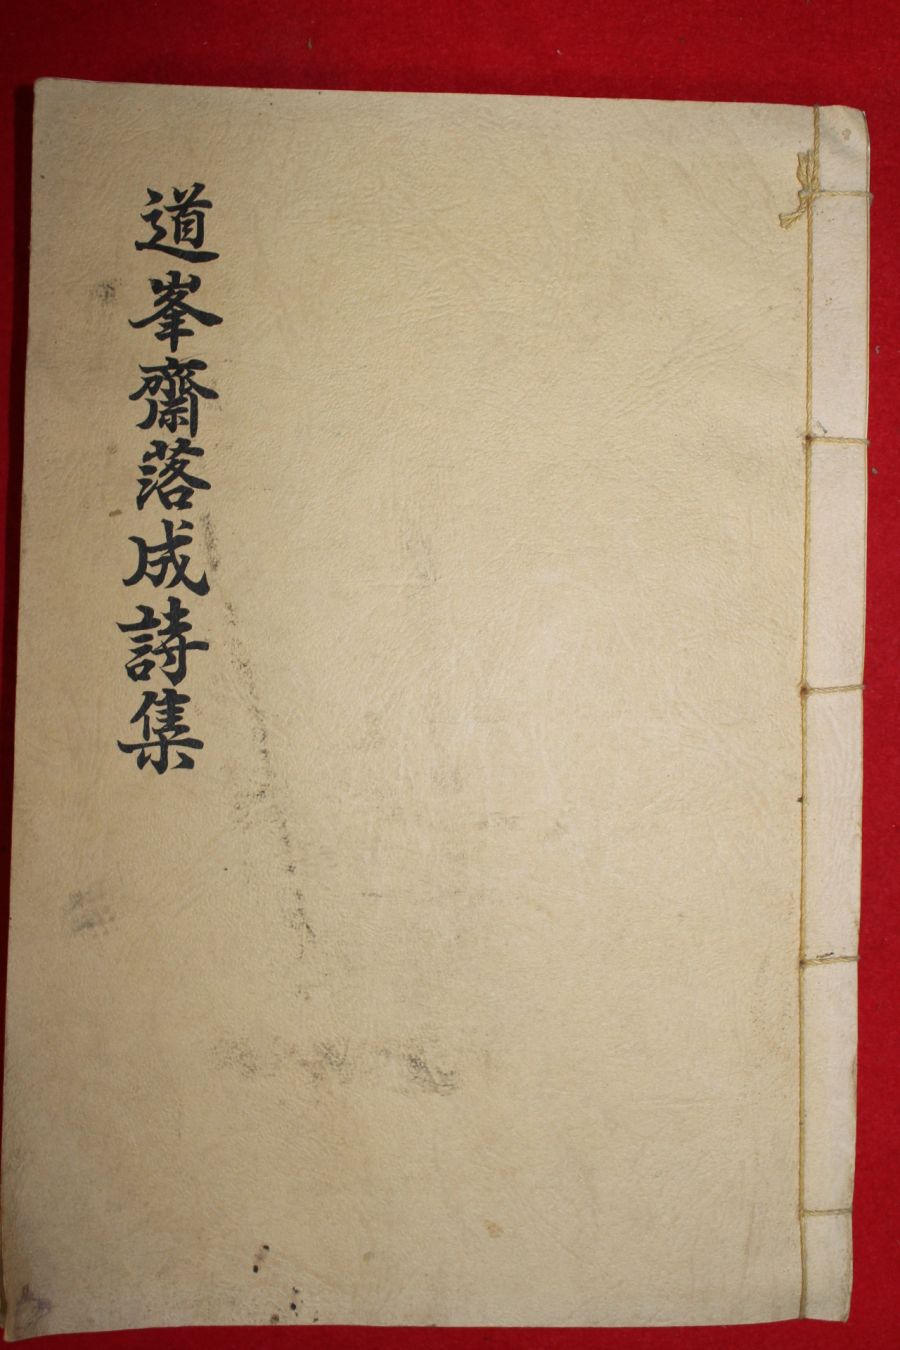 道峯齋落成詩集